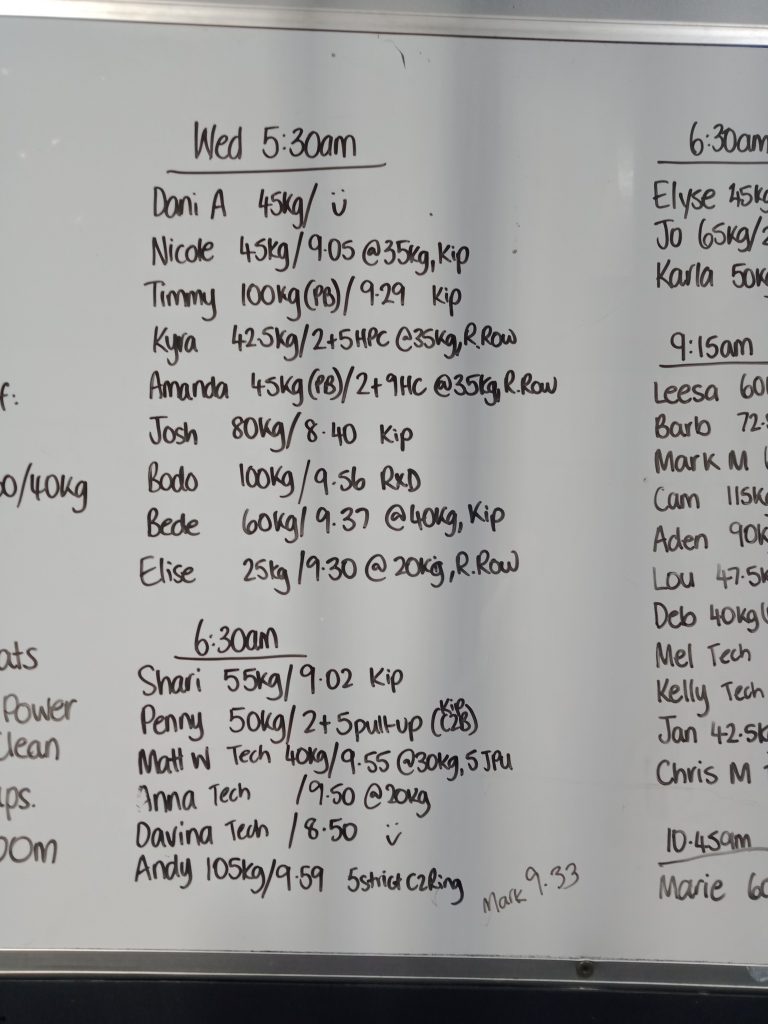 f:
0/40kg
ats
Power
Clean
ups.
00m
Wed 5:30am
Dani A 45kg/ ü
Nicole 45kg/9.05 @35kg, Kip
Timmy 100kg (PB)/9.29 Kip
Kyra 42.5kg/2+5HPC @35kg, R.Row
Amanda 45kg (PB)/2+9HC @35kg, R.Row
Josh 80kg/8.40 Kip
Bodo 100kg/9.56 RxD
Bede 60kg/9.37 @40kg, Kip
Elise 25kg/9.30 @20kg, R.Row
6:30am
Shari 55kg/9.02 Kip
Penny 50kg/2+5pull-up (Kip C2B)
Matt W Tech 40kg/9.55 @30kg, 5 JPU
Anna Tech /9.50 @20kg
Davina Tech /8.50 ü
Andy 105kg/9.59 5strict C2Ring
Mark 9.33
6:30am
Elyse 45kg
Jo 65kg/2
Karla 50k
9:15am
Leesa 60
Barb 72.
Mark M
Cam 115k
Aden 90k
Lou 47.5k
Deb 40kg(
Mel Tech
Kelly Tech
Jan 42.5k
Chris M
10.45am
Marie 60